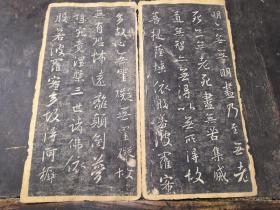 明亦無無明盡乃至無老
死亦無老死盡無苦集滅
道無智亦無得以無所得故
菩提薩埵依般若波羅蜜
多故心無罣礙無罣礙故
無有恐怖遠離顛倒夢
想究竟涅槃三世諸佛依
般若波羅蜜多故得阿耨